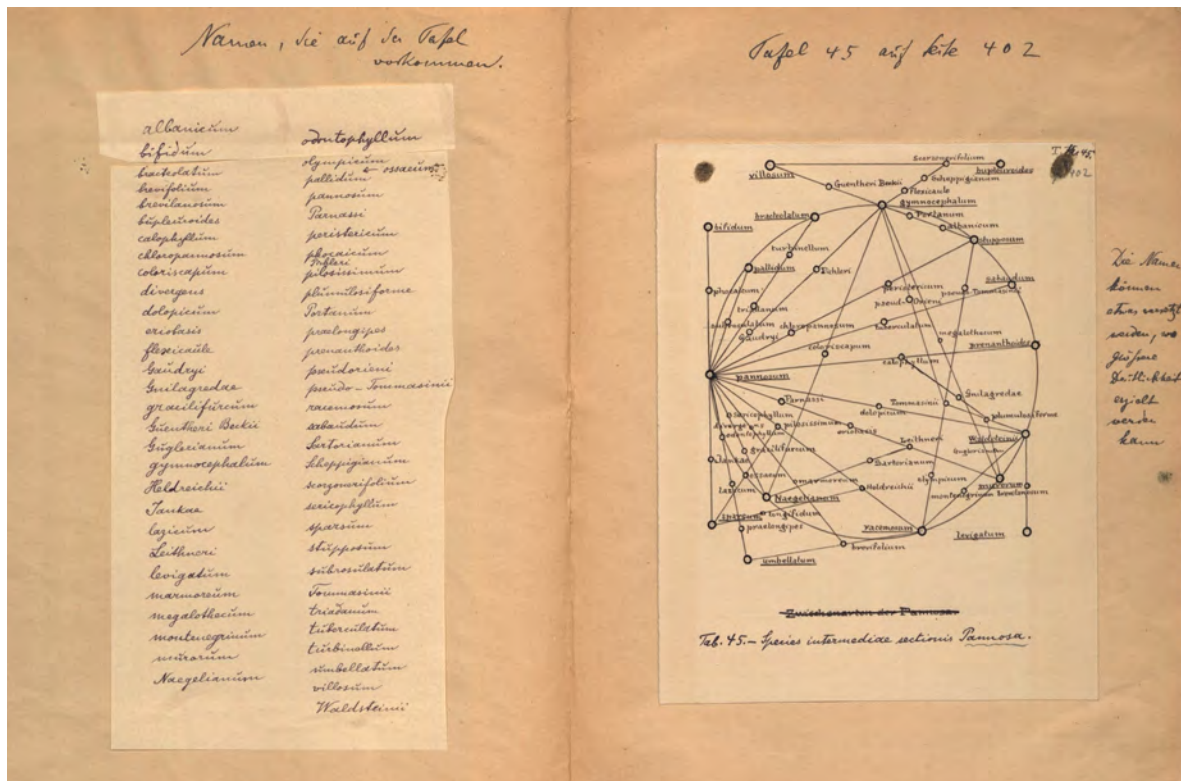 Namen, die auf der Tafel
vorkommen.
albanicum
bifidum
bracteolatum
brevifolium
brevilanosum
bupleuroides
calophyllum
chloropannosum
coloriscapum
divergens
dolopicum
eriobasis
flexicaule
Gaudryi
Gnilagredae
gracilifurcum
Guentheri Beckii
Guglerianum
gymnocephalum
Heldreichii
Jankae
lazicum
Leithneri
levigatum
marmoreum
megalothecum
montenegrinum
murorum
Naegelianum
odontophyllum
olympicum
← ossaeum
pallidum
pannosum
Parnassi
peristericum
phocaicum
Pichleri
pilosissimum
plumulosiforme
Portanum
praelongipes
prenanthoides
pseudorieni
pseudo-Tommasinii
racemosum
sabaudum
Sartorianum
Scheppigianum
scorzonerifolium
sericophyllum
sparsum
stupposum
subrosulatum
Tommasinii
triadanum
tuberculatum
turbinellum
umbellatum
villosum
Waldsteinii
Tafel 45 auf Seite 402
45
402
scorzonerifolium
villosum
bupleuroides
Guentheri Beckii
Scheppigianum
Flexicaule
gymnocephalum
bracteolatum
Portanum
bifidum
albanicum
stupposum
turbinellum
pallidum
Pichleri
sabaudum
phocaicum
peristericum
pseudo-Tommasinii
triadanum
pseud-Orieni
Gaudryi
chloropannosum
tuberculatum
megalothecum
coloriscapum
prenanthoides
calophyllum
pannosum
Parnassi
Tommasinii
Gnilagredae
sericophyllum
dolopicum
plumulosiforme
divergens
pilosissimum
eriobasis
odontophyllum
Leithneri
Waldsteinii
gracilifurcum
Guglerianum
Jankae
Sartorianum
ossaeum
marmoreum
olympicum
murorum
lazicum
Heldreichii
montenegrinum
Naegelianum
sparsum
praelongipes
racemosum
levigatum
brevifolium
umbellatum
Zwischenarten der Pannosa
Tab. 45.— Species intermediae sectionis Pannosa.
Die Namen
können
etwas versetzt
werden, wo
grössere
Deutlichkeit
erzielt
werden
kann